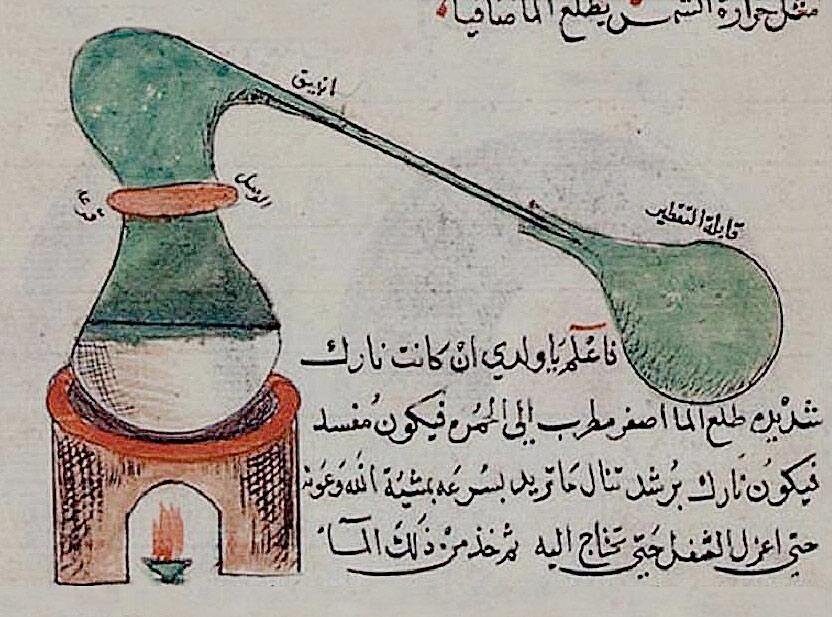 مثل حرارة الشمس يطلع الما صافيا
انبيق
الوصل
قابلة التقطير
فاعلم يا ولدي ان كانت نارك
شديده طلع الما اصفر مطرب الي الحمره فيكون مفسد
فيكون نارك برشد تنال ما تريد بسرعه بمشيئة الله وعونه
حتي اعزل الثفل حتي تحتاج اليه ثم خذ من ذلك المآء